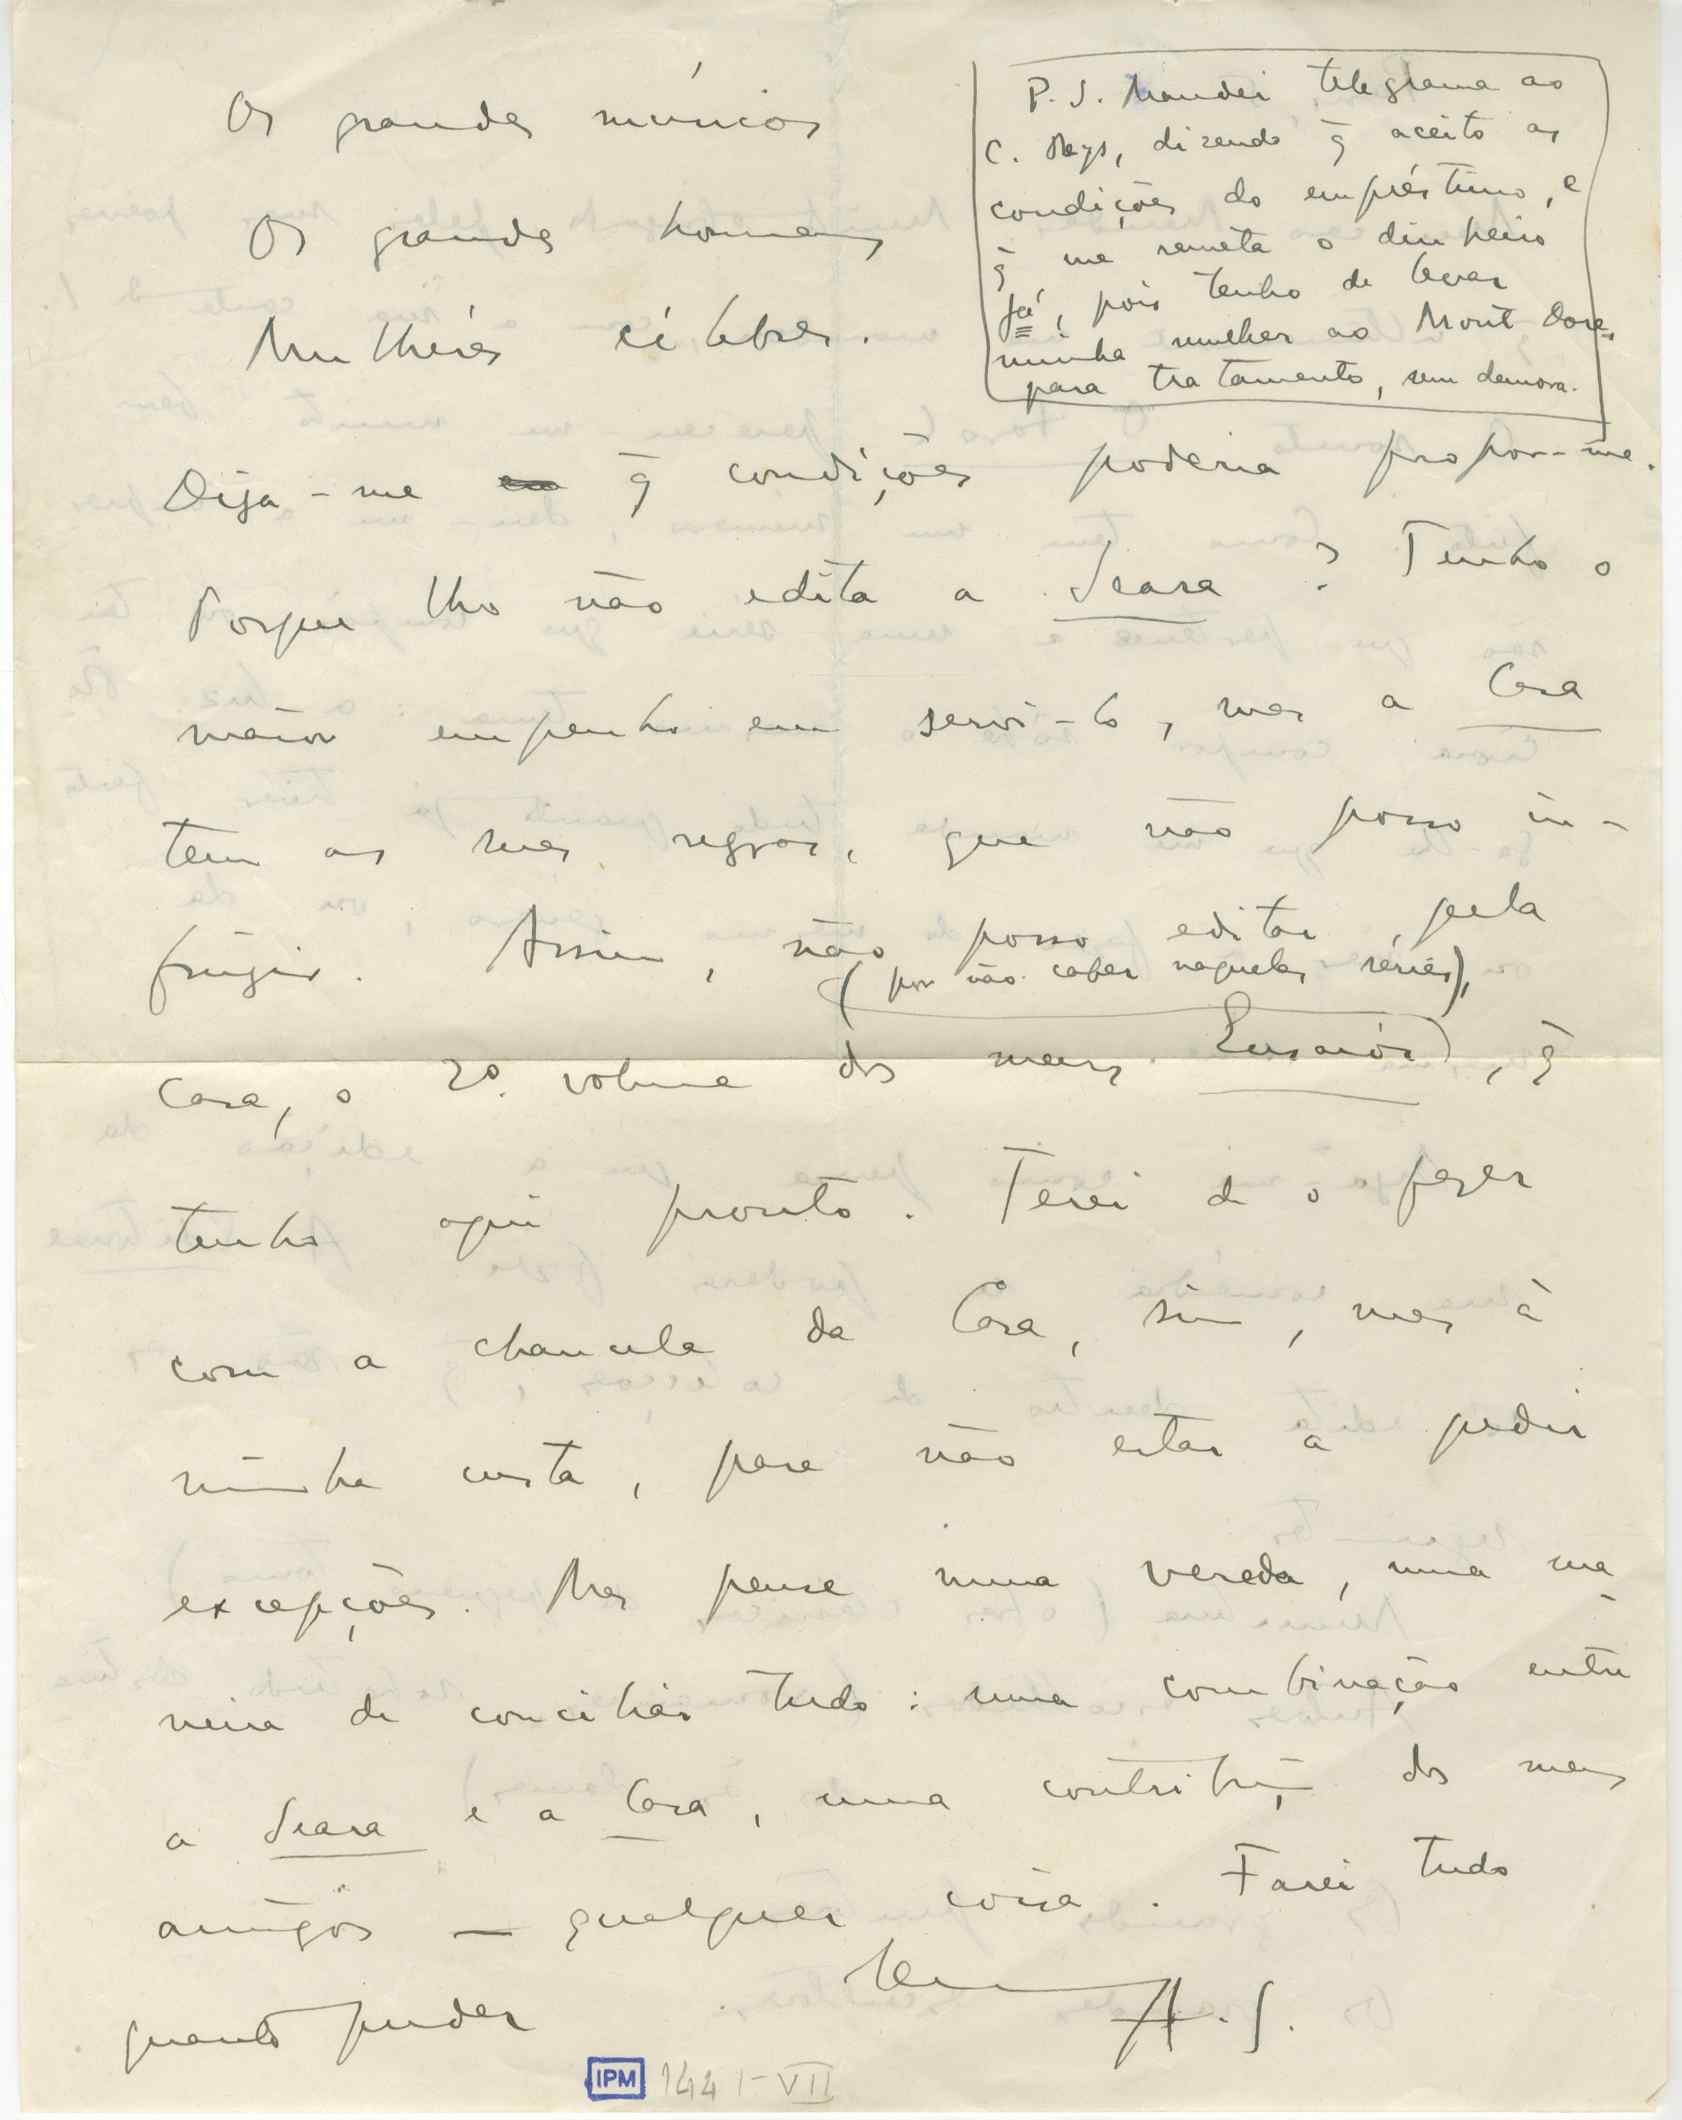 Os grandes músicos
Os grandes homens
Mulheres célebres.
P. S. Mandei telegrama ao
C. Reys, dizendo q̃ aceito as
condições do empréstimo, e
q̃ me remeta o dinheiro
já, pois tenho de levar
minha mulher ao Mont Dore,
para tratamento, sem demora.
Diga-me q̃ condições poderia propor-me.
Porque lho não edita a Seara? Tenho o
maior empenho em servi-lo, mas a Casa
tem as suas regras, que não posso in-
fringir. Assim, não posso editar, pela
(por não caber naquelas séries),
Casa, o 2º. volume dos meus Ensaios, q̃
tenho aqui pronto. Terei de o fazer
com a chancela da Casa, sim, mas à
minha custa, para não estar a pedir
excepções. Mas pense numa vereda, numa ma-
neira de conciliar tudo: uma combinação entre
a Seara e a Casa, uma contribução dos meus
amigos — qualquer coisa. Farei tudo
quanto puder
A. S.
IPM 144 I-VII